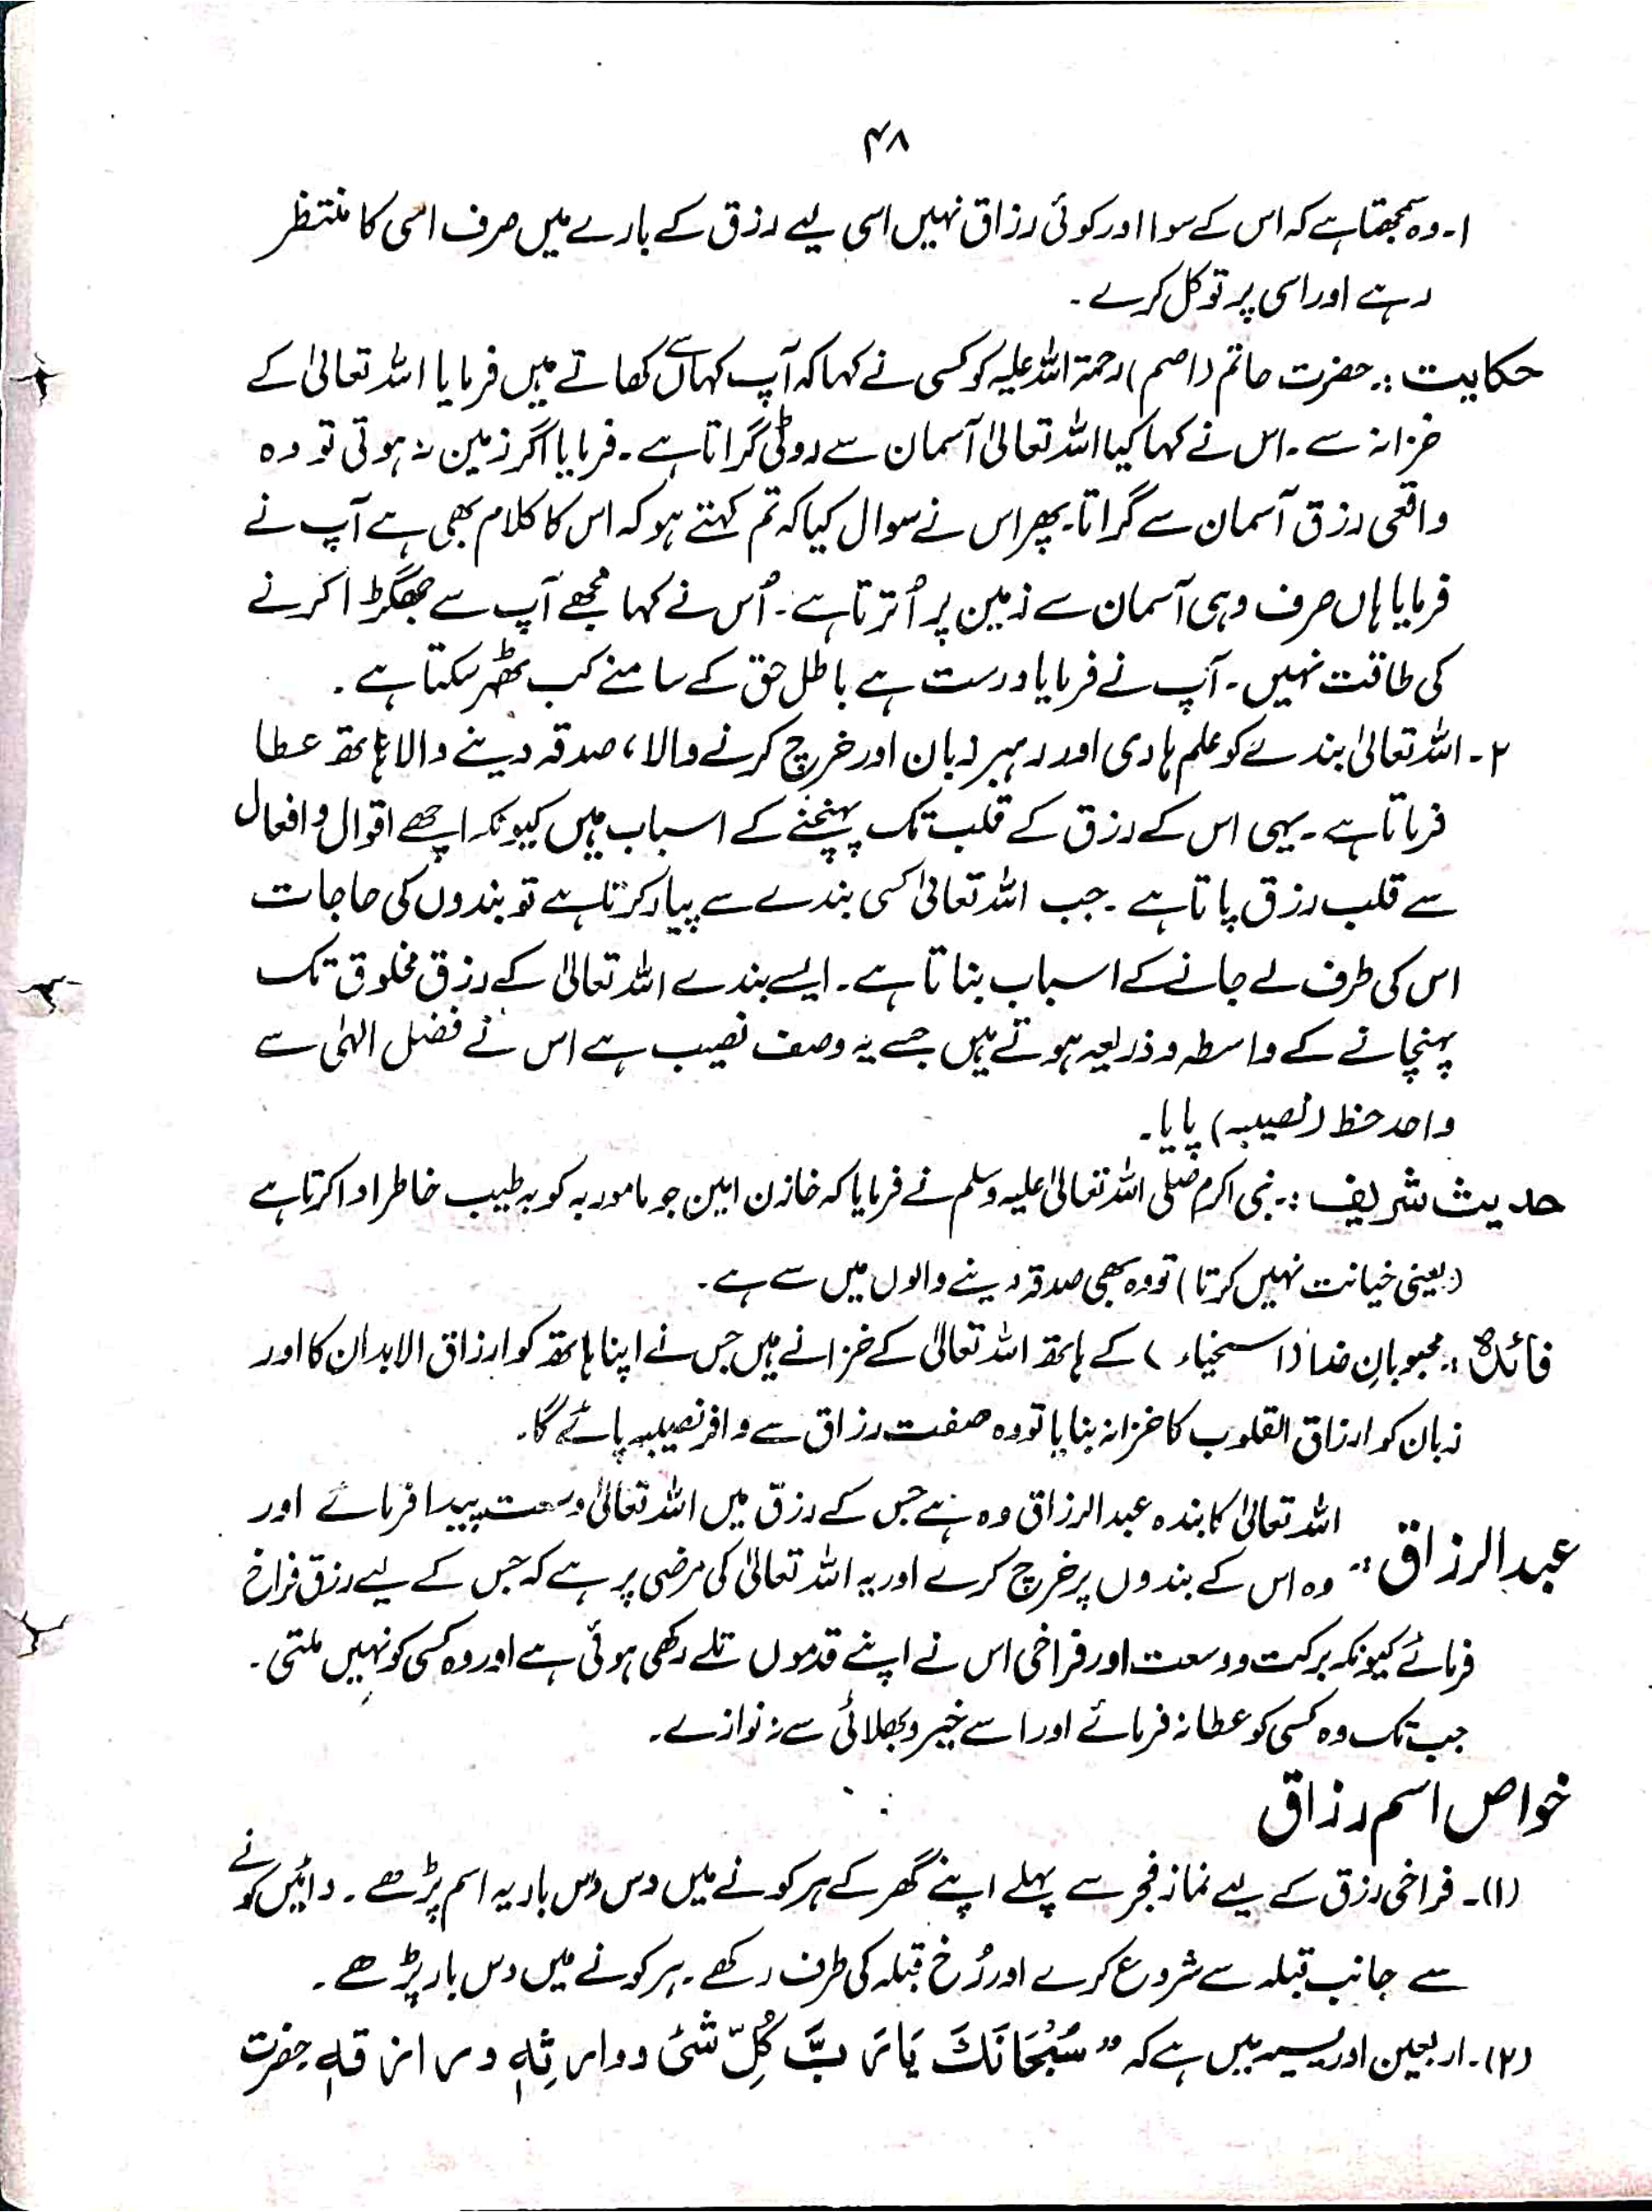 ۴۸
۱۔ وہ سمجھتا ہے کہ اس کے سوا اور کوئی رزاق نہیں اسی لیے رزق کے بارے میں صرف اسی کا منتظر
رہے اور اسی پر توکل کرے ۔
حکایت :۔ حضرت حاتم (اصم) رحمۃ اللہ علیہ کو کسی نے کہا کہ آپ کہاں سے کھاتے ہیں فرمایا اللہ تعالیٰ کے
خزانہ سے ۔ اس نے کہا کیا اللہ تعالیٰ آسمان سے روٹی گراتا ہے ۔ فرمایا اگر زمین نہ ہوتی تو وہ
واقعی رزق آسمان سے گراتا۔ پھر اس نے سوال کیا کہ تم کہتے ہو کہ اس کا کلام بھی ہے آپ نے
فرمایا ہاں صرف وہی آسمان سے زمین پر اُترتا ہے ۔ اُس نے کہا مجھے آپ سے جھگڑا کرنے
کی طاقت نہیں ۔ آپ نے فرمایا درست ہے باطل حق کے سامنے کب ٹھہر سکتا ہے ۔
۲ ۔ اللہ تعالیٰ بندے کو علم ہادی اور رہبر زبان اور خرچ کرنے والا، صدقہ دینے والا ہاتھ عطا
فرماتا ہے ۔ یہی اس کے رزق کے قلب تک پہنچنے کے اسباب ہیں کیونکہ اچھے اقوال و افعال
سے قلب رزق پاتا ہے ۔ جب اللہ تعالیٰ کسی بندے سے پیار کرتا ہے تو بندوں کی حاجات
اس کی طرف لے جانے کے اسباب بناتا ہے ۔ ایسے بندے اللہ تعالیٰ کے رزق مخلوق تک
پہنچانے کے واسطہ و ذریعہ ہوتے ہیں جسے یہ وصف نصیب ہے اس نے فضل الٰہی سے
واحد حظ (نصیبہ) پایا ۔
حدیث شریف :۔ نبی اکرم صلی اللہ تعالیٰ علیہ وسلم نے فرمایا کہ خازن امین جو مامور بہ کو بہ طیب خاطر ادا کرتا ہے
(یعنی خیانت نہیں کرتا) تو وہ بھی صدقہ دینے والوں میں سے ہے ۔
فائدہ :۔ محبوبانِ خدا (اسخیاء) کے ہاتھ اللہ تعالیٰ کے خزانے ہیں جس نے اپنا ہاتھ کو ارزاق الابدان کا اور
زبان کو ارزاق القلوب کا خزانہ بنایا تو وہ صفت رزاق سے وافر نصیبہ پائے گا ۔
عبدالرزاق :۔ اللہ تعالیٰ کا بندہ عبدالرزاق وہ ہے جس کے رزق میں اللہ تعالیٰ وسعت پیدا فرمائے اور
وہ اس کے بندوں پر خرچ کرے اور یہ اللہ تعالیٰ کی مرضی پر ہے کہ جس کے لیے رزق فراخ
فرمائے کیونکہ برکت و وسعت اور فراخی اس نے اپنے قدموں تلے رکھی ہوئی ہے اور وہ کسی کو نہیں ملتی ۔
جب تک وہ کسی کو عطا نہ فرمائے اور اسے خیر و بھلائی سے نہ نوازے ۔
خواص اسم رزاق
(۱)۔ فراخی رزق کے لیے نماز فجر سے پہلے اپنے گھر کے ہر کونے میں دس دس بار یہ اسم پڑھے ۔ دائیں کونے
سے جانب قبلہ سے شروع کرے اور رُخ قبلہ کی طرف رکھے ۔ ہر کونے میں دس بار پڑھے ۔
(۲)۔ اربعین ادریسیہ میں ہے کہ ” سَبْحَانَكَ يَا رَبَّ كُلِّ شَیْ ووارِثِهٖ ورازقه حضرت